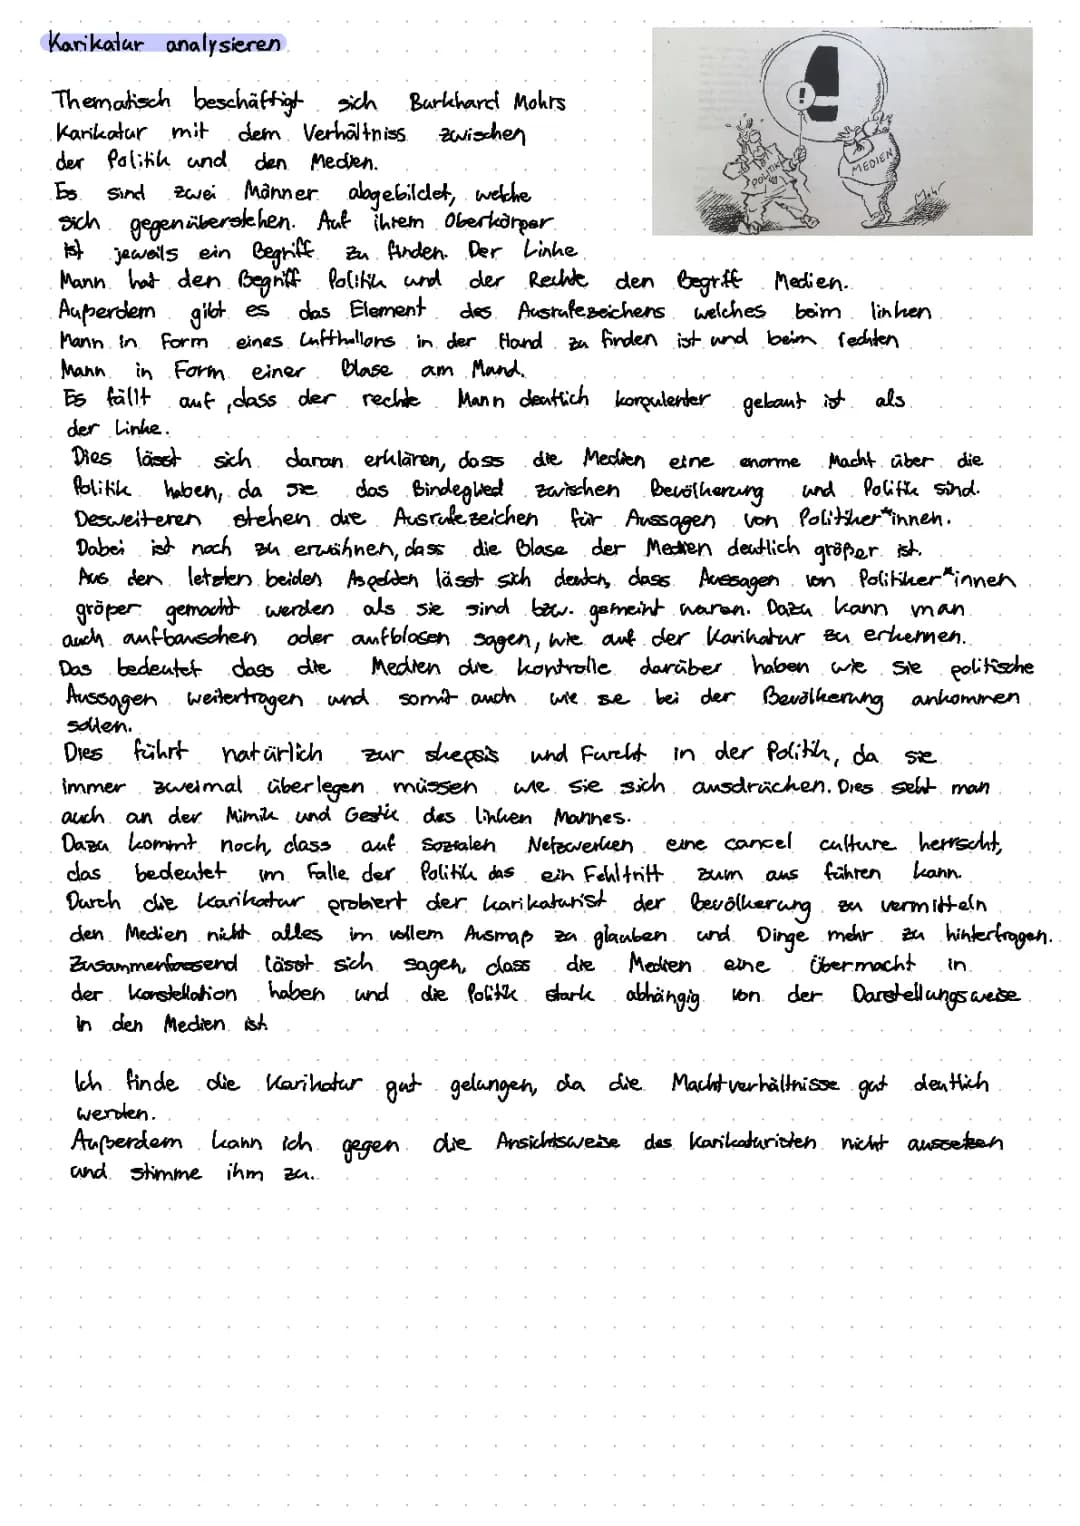 Karikatur analysieren
Thematisch beschäftigt sich Burkhard Mohrs
Karikatur mit dem Verhältniss zwischen
der Politik und den Medien.
Es sind zwei Männer abgebildet, welche
sich gegenüberstehen. Auf ihrem Oberkörper
ist jeweils ein Begriff zu finden. Der Linke
Mann hat den Begriff Politik und der Rechte den Begriff Medien.
Außerdem gibt es das Element des Ausrufezeichens welches beim linken
Mann in Form eines Luftballons in der Hand zu finden ist und beim rechten
Mann in Form einer Blase am Mund.
Es fällt auf, dass der rechte Mann deutlich korpulenter gebaut ist als
der Linke.
Dies lässt sich daran erklären, dass die Medien eine enorme Macht über die
Politik haben, da sie das Bindeglied zwischen Bevölkerung und Politik sind.
Desweiteren stehen die Ausrufezeichen für Aussagen von Politiker*innen.
Dabei ist noch zu erwähnen, dass die Blase der Medien deutlich größer ist.
Aus den letzten beiden Aspekten lässt sich deuten, dass Aussagen von Politiker*innen
größer gemacht werden als sie sind bzw. gemeint waren. Dazu kann man
auch aufbauschen oder aufblasen sagen, wie auf der Karikatur zu erkennen.
Das bedeutet dass die Medien die Kontrolle darüber haben wie sie politische
Aussagen weitertragen und somit auch wie sie bei der Bevölkerung ankommen
sollen.
Dies führt natürlich zur skepsis und Furcht in der Politik, da sie
immer zweimal überlegen müssen wie sie sich ausdrücken. Dies seht man
auch an der Mimik und Gestik des linken Mannes.
Dazu kommt noch, dass auf Sozialen Netzwerken eine cancel culture herrscht,
das bedeutet im Falle der Politik das ein Fehltritt zum aus führen kann.
Durch die Karikatur probiert der Karikaturist der Bevölkerung zu vermitteln
den Medien nicht alles im vollem Ausmaß zu glauben und Dinge mehr zu hinterfragen.
Zusammenfassend lässt sich sagen, dass die Medien eine Übermacht in
der Konstellation haben und die Politik stark abhängig von der Darstellungsweise
in den Medien ist
Ich finde die Karikatur gut gelungen, da die Machtverhältnisse gut deutlich
werden.
Außerdem kann ich gegen die Ansichtsweise des Karikaturisten nicht aussetzen
und stimme ihm zu.
!
!
POLITIK
MEDIEN
Mohr